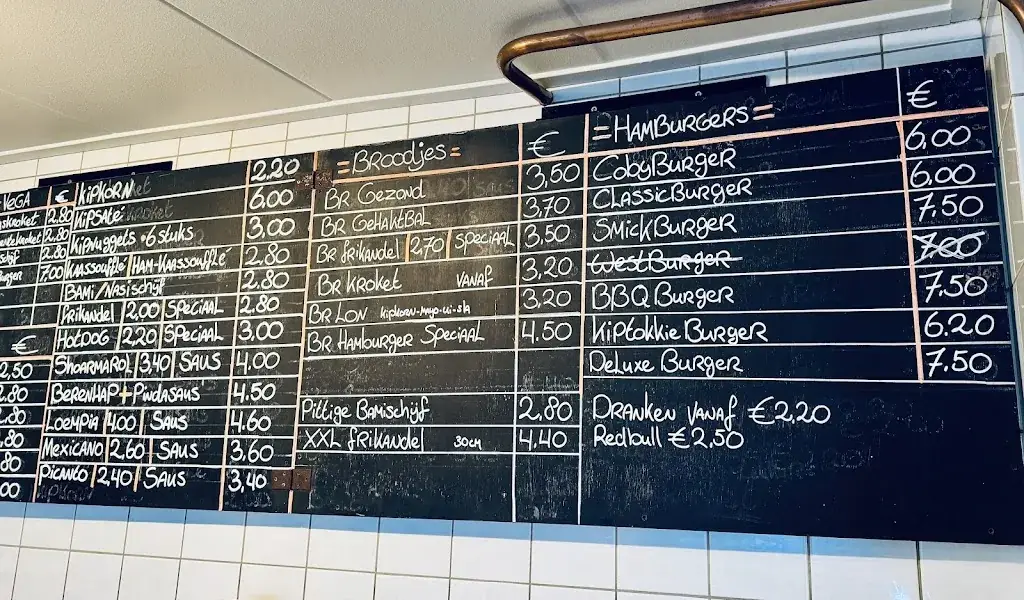 VEGA €
kroket 2.80
kroket 2.80
2.80
7,00
€
2,50
2.80
2.80
2.80
80
00
KipKORN 2.20
KipSAté 6.00
Kipnuggets •6 stuks 3,00
Kaassoufflé / HAM-KAASSOUFFlé 2.80
BAMi/NASiSchijf 2.80
FRiKANdel 2,00 SPECiAAL 2.80
HotDOG 2,20 SPECiAAL 3.00
SHOARMAROL 3,40 SAUS 4.00
BERENHAP + PiNDASAUS 4.50
LOEMPiA 4,00 SAUS 4.60
MEXiCANO 2,60 SAUS 3.60
PiCANTO 2,40 SAUS 3,40
=BROODJES= €
BR GEZOND 3,50
BR GEHAKTBAL 3,70
BR FRiKANdel 2,70 SPECiAAL 3,50
BR KROKET VANAF 3,20
BR LON KipKORN-MAyo-ui-sla 3,20
BR HAMBURGER SPECiAAL 4.50
PiTTiGE BAMiSchijf 2,80
XXL FRiKANdel 30cm 4.40
=HAMBURGERS= €
COBYBURGER 6,00
CLASSiCBURGER 6,00
SMiCKBURGER 7.50
WESTBURGER 7,00
BBQ BURGER 7,50
KiPTOKKiE BURGER 6.20
DELUXE BURGER 7.50
DRANKEN VANAF €2,20
Redbull €2,50